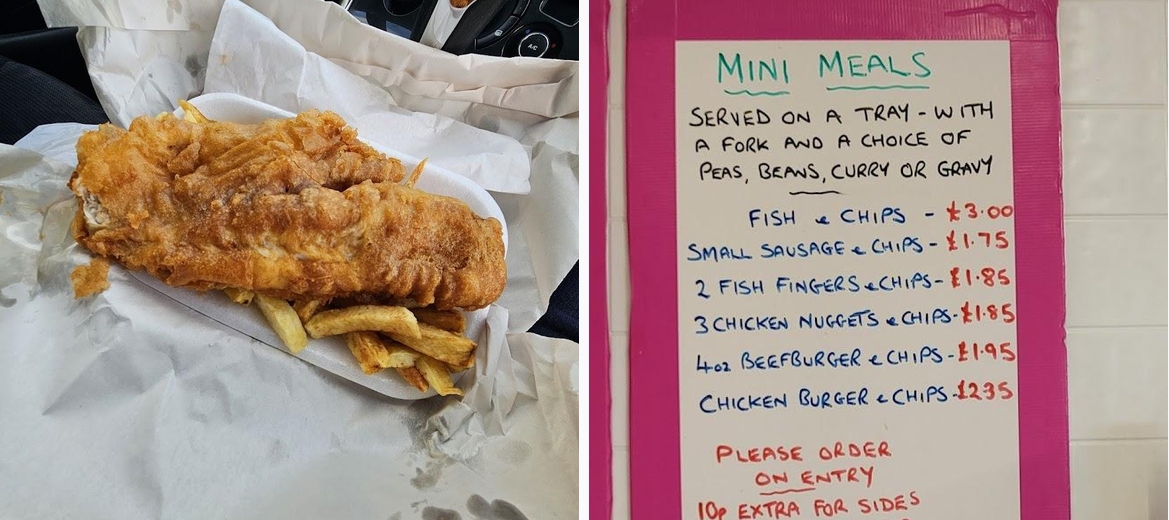 A/C
MINI MEALS
SERVED ON A TRAY - WITH
A FORK AND A CHOICE OF
PEAS, BEANS, CURRY OR GRAVY
FISH & CHIPS - £3.00
SMALL SAUSAGE & CHIPS - £1.75
2 FISH FINGERS & CHIPS - £1.85
3 CHICKEN NUGGETS & CHIPS - £1.85
4oz BEEFBURGER & CHIPS - £1.95
CHICKEN BURGER & CHIPS - £2.35
PLEASE ORDER
ON ENTRY
10p EXTRA FOR SIDES